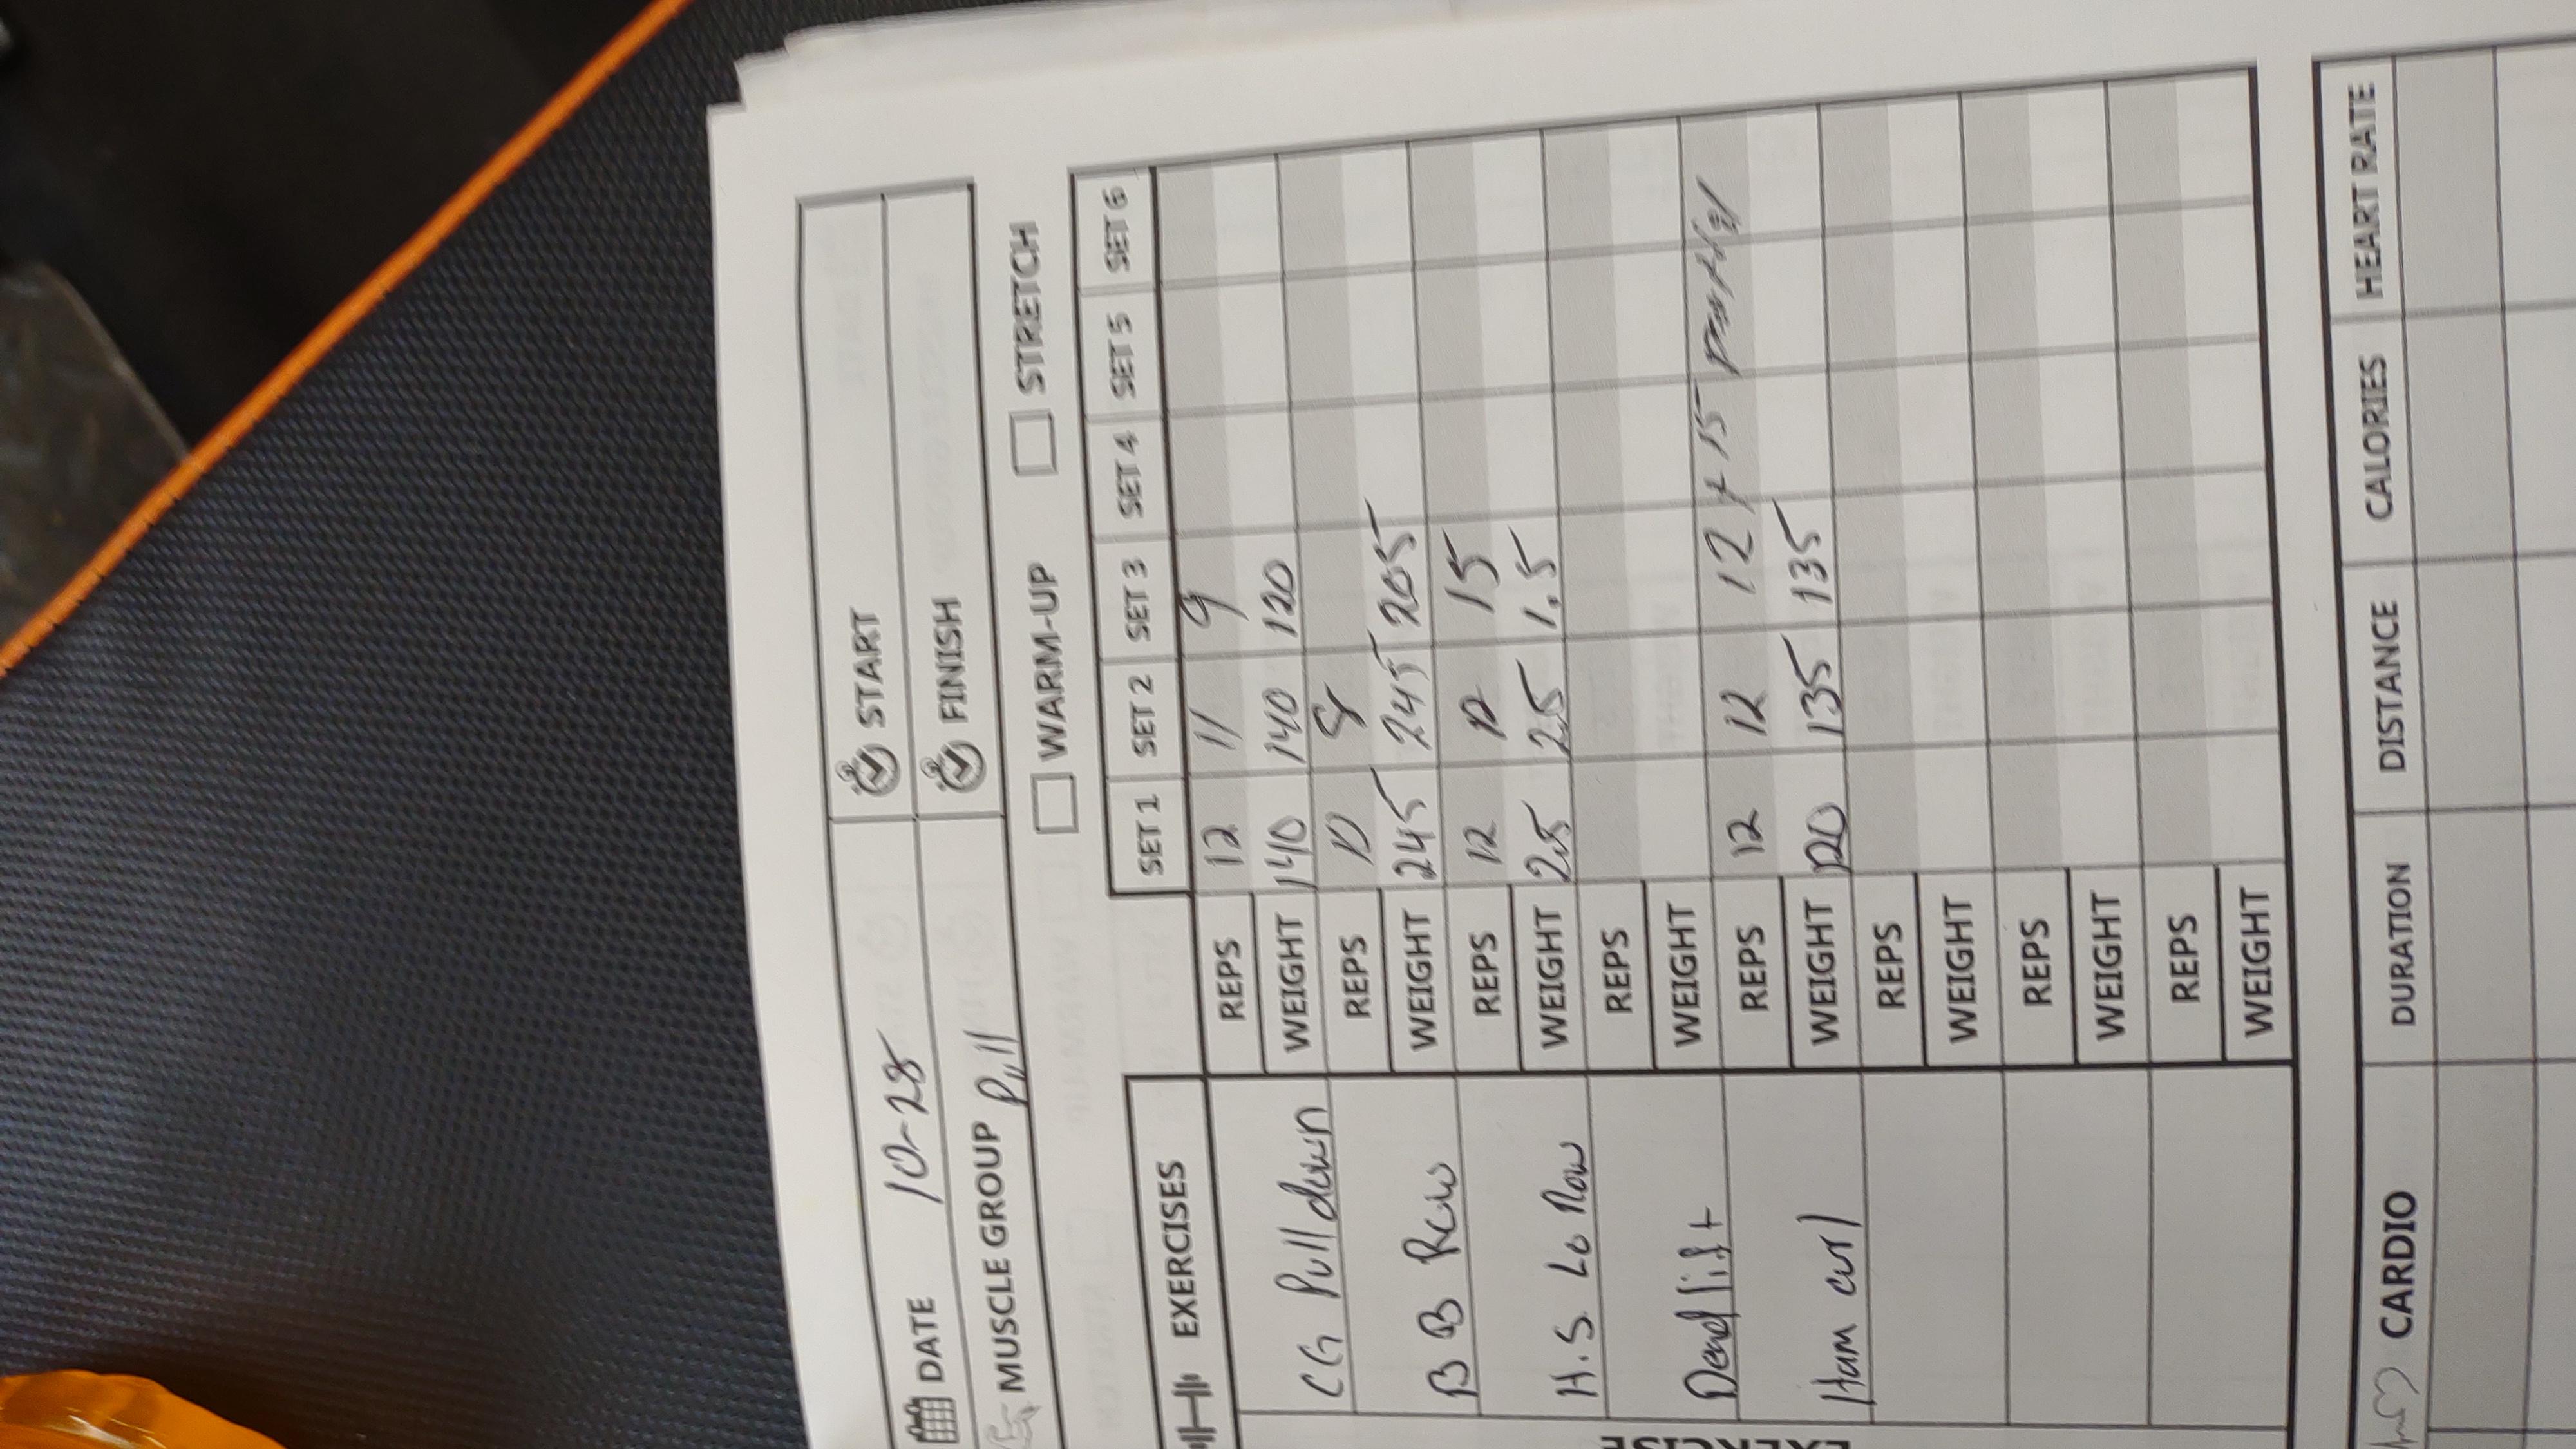 DATE 10-28 START
MUSCLE GROUP Pull FINISH
WARM-UP STRETCH
EXERCISES SET 1 SET 2 SET 3 SET 4 SET 5 SET 6
REPS 12 11 9
CG Pulldown WEIGHT 140 140 120
REPS 10 8
B B Row WEIGHT 245 245 205
REPS 12 12 15
H.S. Lo Row WEIGHT 2.5 2.5 1.5
REPS
Deadlift WEIGHT
REPS 12 12 12 + 15 partial
Ham curl WEIGHT 120 135 135
REPS
WEIGHT
REPS
WEIGHT
REPS
WEIGHT
CARDIO DURATION DISTANCE CALORIES HEART RATE